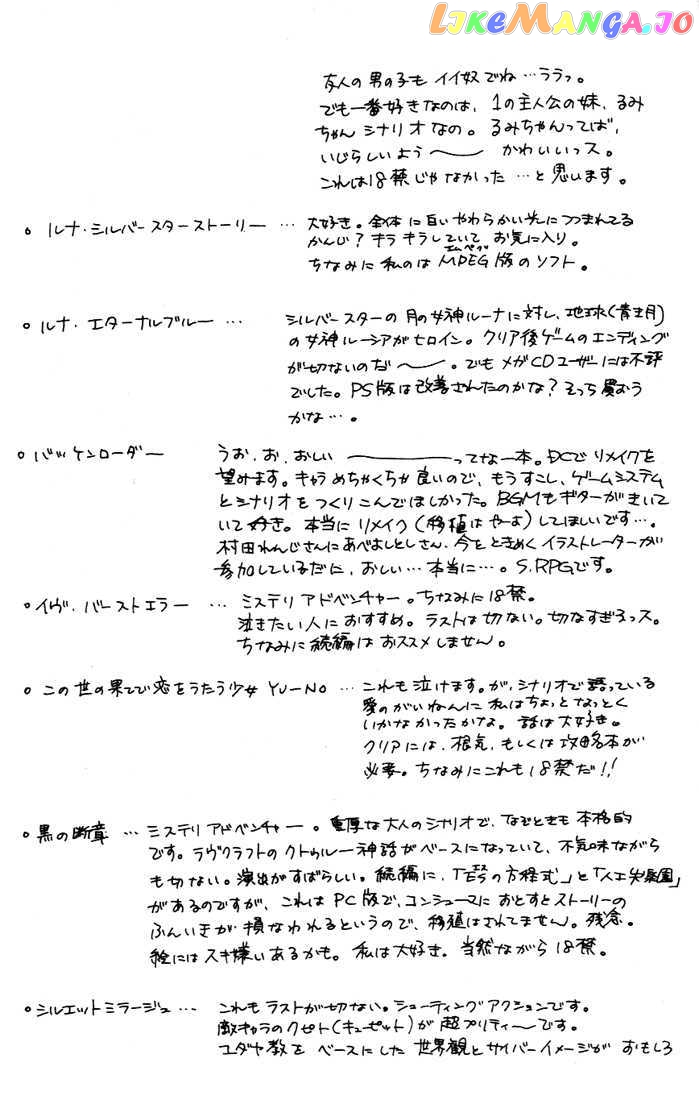 LIKEMANGA.IO
友人の男の子もイイ奴でね…ララっ。
でも一番好きなのは、1の主人公の妹、るみ
ちゃんシナリオなの。るみちゃんってば、
いじらしいよう〜 かわいいっス。
これは18禁じゃなかった…と思います。
○ ルナ・シルバースターストーリー … 大好き。全体に白いやわらかい光につつまれてる
かんじ？キラキラしていて、お気に入り。
ちなみに私のはMPEG版のソフト。
エムペグ
○ ルナ・エターナルブルー … シルバースターの月の女神ルーナに対し、地球(青き月)
の女神ルーシアがヒロイン。クリア後ゲームのエンディング
が切ないのだ〜。でもメガCDユーザーには不評
でした。PS版は改善されたのかな？そっち買おう
かな…。
○ バッケンローダー うお、お、おしい ーってな一本。DCでリメイクを
望みます。キャラめちゃくちゃ良いので、もうすこし、ゲームシステム
とシナリオをつくりこんでほしかった。BGMもギターがきいて
いて好き。本当にリメイク(移植はやーよ)してほしいです…。
村田れんじさんにあべよしとしさん、今をときめくイラストレーターが
参加しているだに、おしい…本当に…。S.RPGです。
○ イヴ・バーストエラー … ミステリアドベンチャー。ちなみに18禁。
泣きたい人におすすめ。ラストは切ない。切なすぎるっス。
ちなみに続編はおススメしません。
○ この世の果てで恋をうたう少女 YU-NO … これも泣けます。が、シナリオで語っている
愛のがいねんに私はちょっとなっとく
いかなかったかな。話は大好き。
クリアには、根気、もしくは攻略本が
必要。ちなみにこれも18禁だ!!
○ 黒の断章 … ミステリアドベンチャー。重厚な大人のシナリオで、なぞときも本格的
です。ラヴクラフトのクトゥルー神話がベースになっていて、不気味ながら
も切ない。演出がすばらしい。続編に、「琴の方程式」と「人工失楽園」
があるのですが、これはPC版で、コンシューマにおとすとストーリーの
ふんいきが損なわれるというので、移植はされてません。残念。
絵にはスキ嫌いあるかも。私は大好き。当然ながら18禁。
○ シルエットミラージュ … これもラストが切ない。シューティングアクションです。
敵キャラのクピト(キューピット)が超プリティーです。
ユダヤ教をベースにした世界観とサイバーイメージがおもしろ